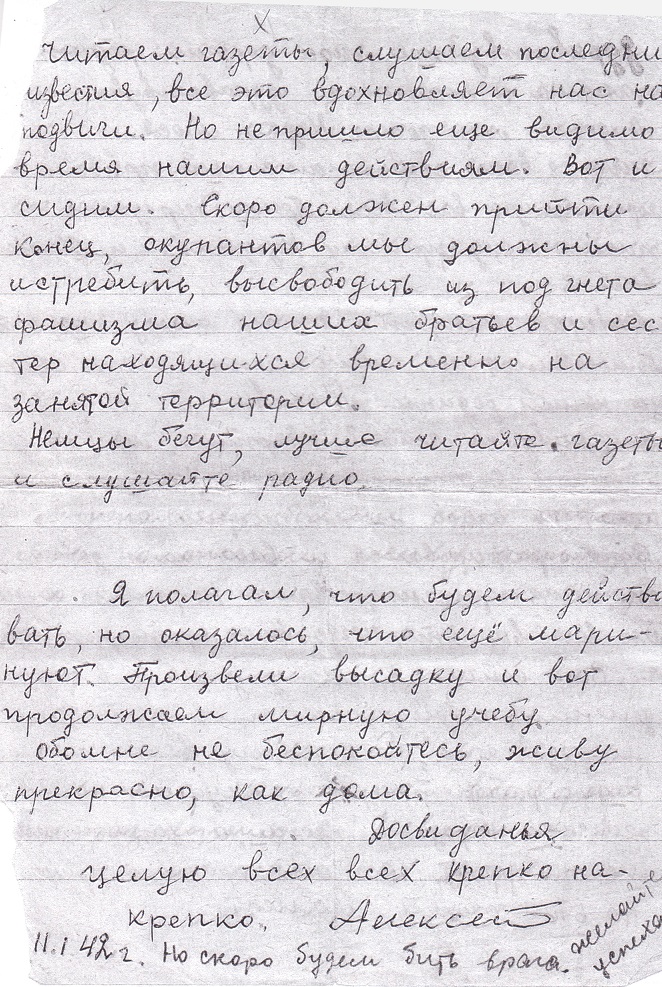 х
Читаем газеты, слушаем последни
известия, все это вдохновляет нас на
подвиги. Но не пришло еще видимо
время нашим действиям. Вот и
сидим. Скоро должен притти
конец, окупантов мы должны
истребить, высвободить из под гнета
фашизма наших братьев и сес
тер находящихся временно на
занятой территории.
Немцы бегут, лучше читайте газеты
и слушайте радио.
Я полагал, что будем действо
вать, но оказалось, что ещё мари-
нуют. Произвели высадку и вот
продолжаем мирную учебу
обомне не беспокойтесь, живу
прекрасно, как дома.
Досвиданья
целую всех всех крепко на-
крепко. Алексей
11.I 42 г. Но скоро будем бить врага. желайте
успеха